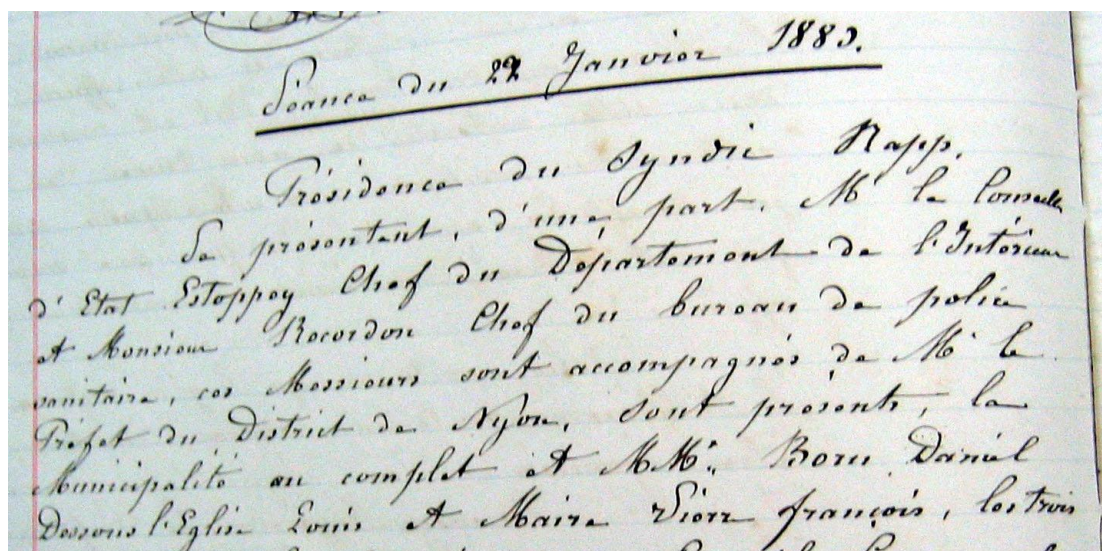 Séance du 22 Janvier 1883.
Présidence du Syndic Rapp.
Se présentent, d'une part, Mr le Conseiller
d'Etat Estoppey Chef du Département de l'Intérieur
et Monsieur Recordon Chef du bureau de police
sanitaire, ces Messieurs sont accompagnés de Mr le
Préfet du District de Nyon, sont présents, la
Municipalité au complet et MMrs Daniel
Dessous l'Eglise Louis et Maire François, les trois